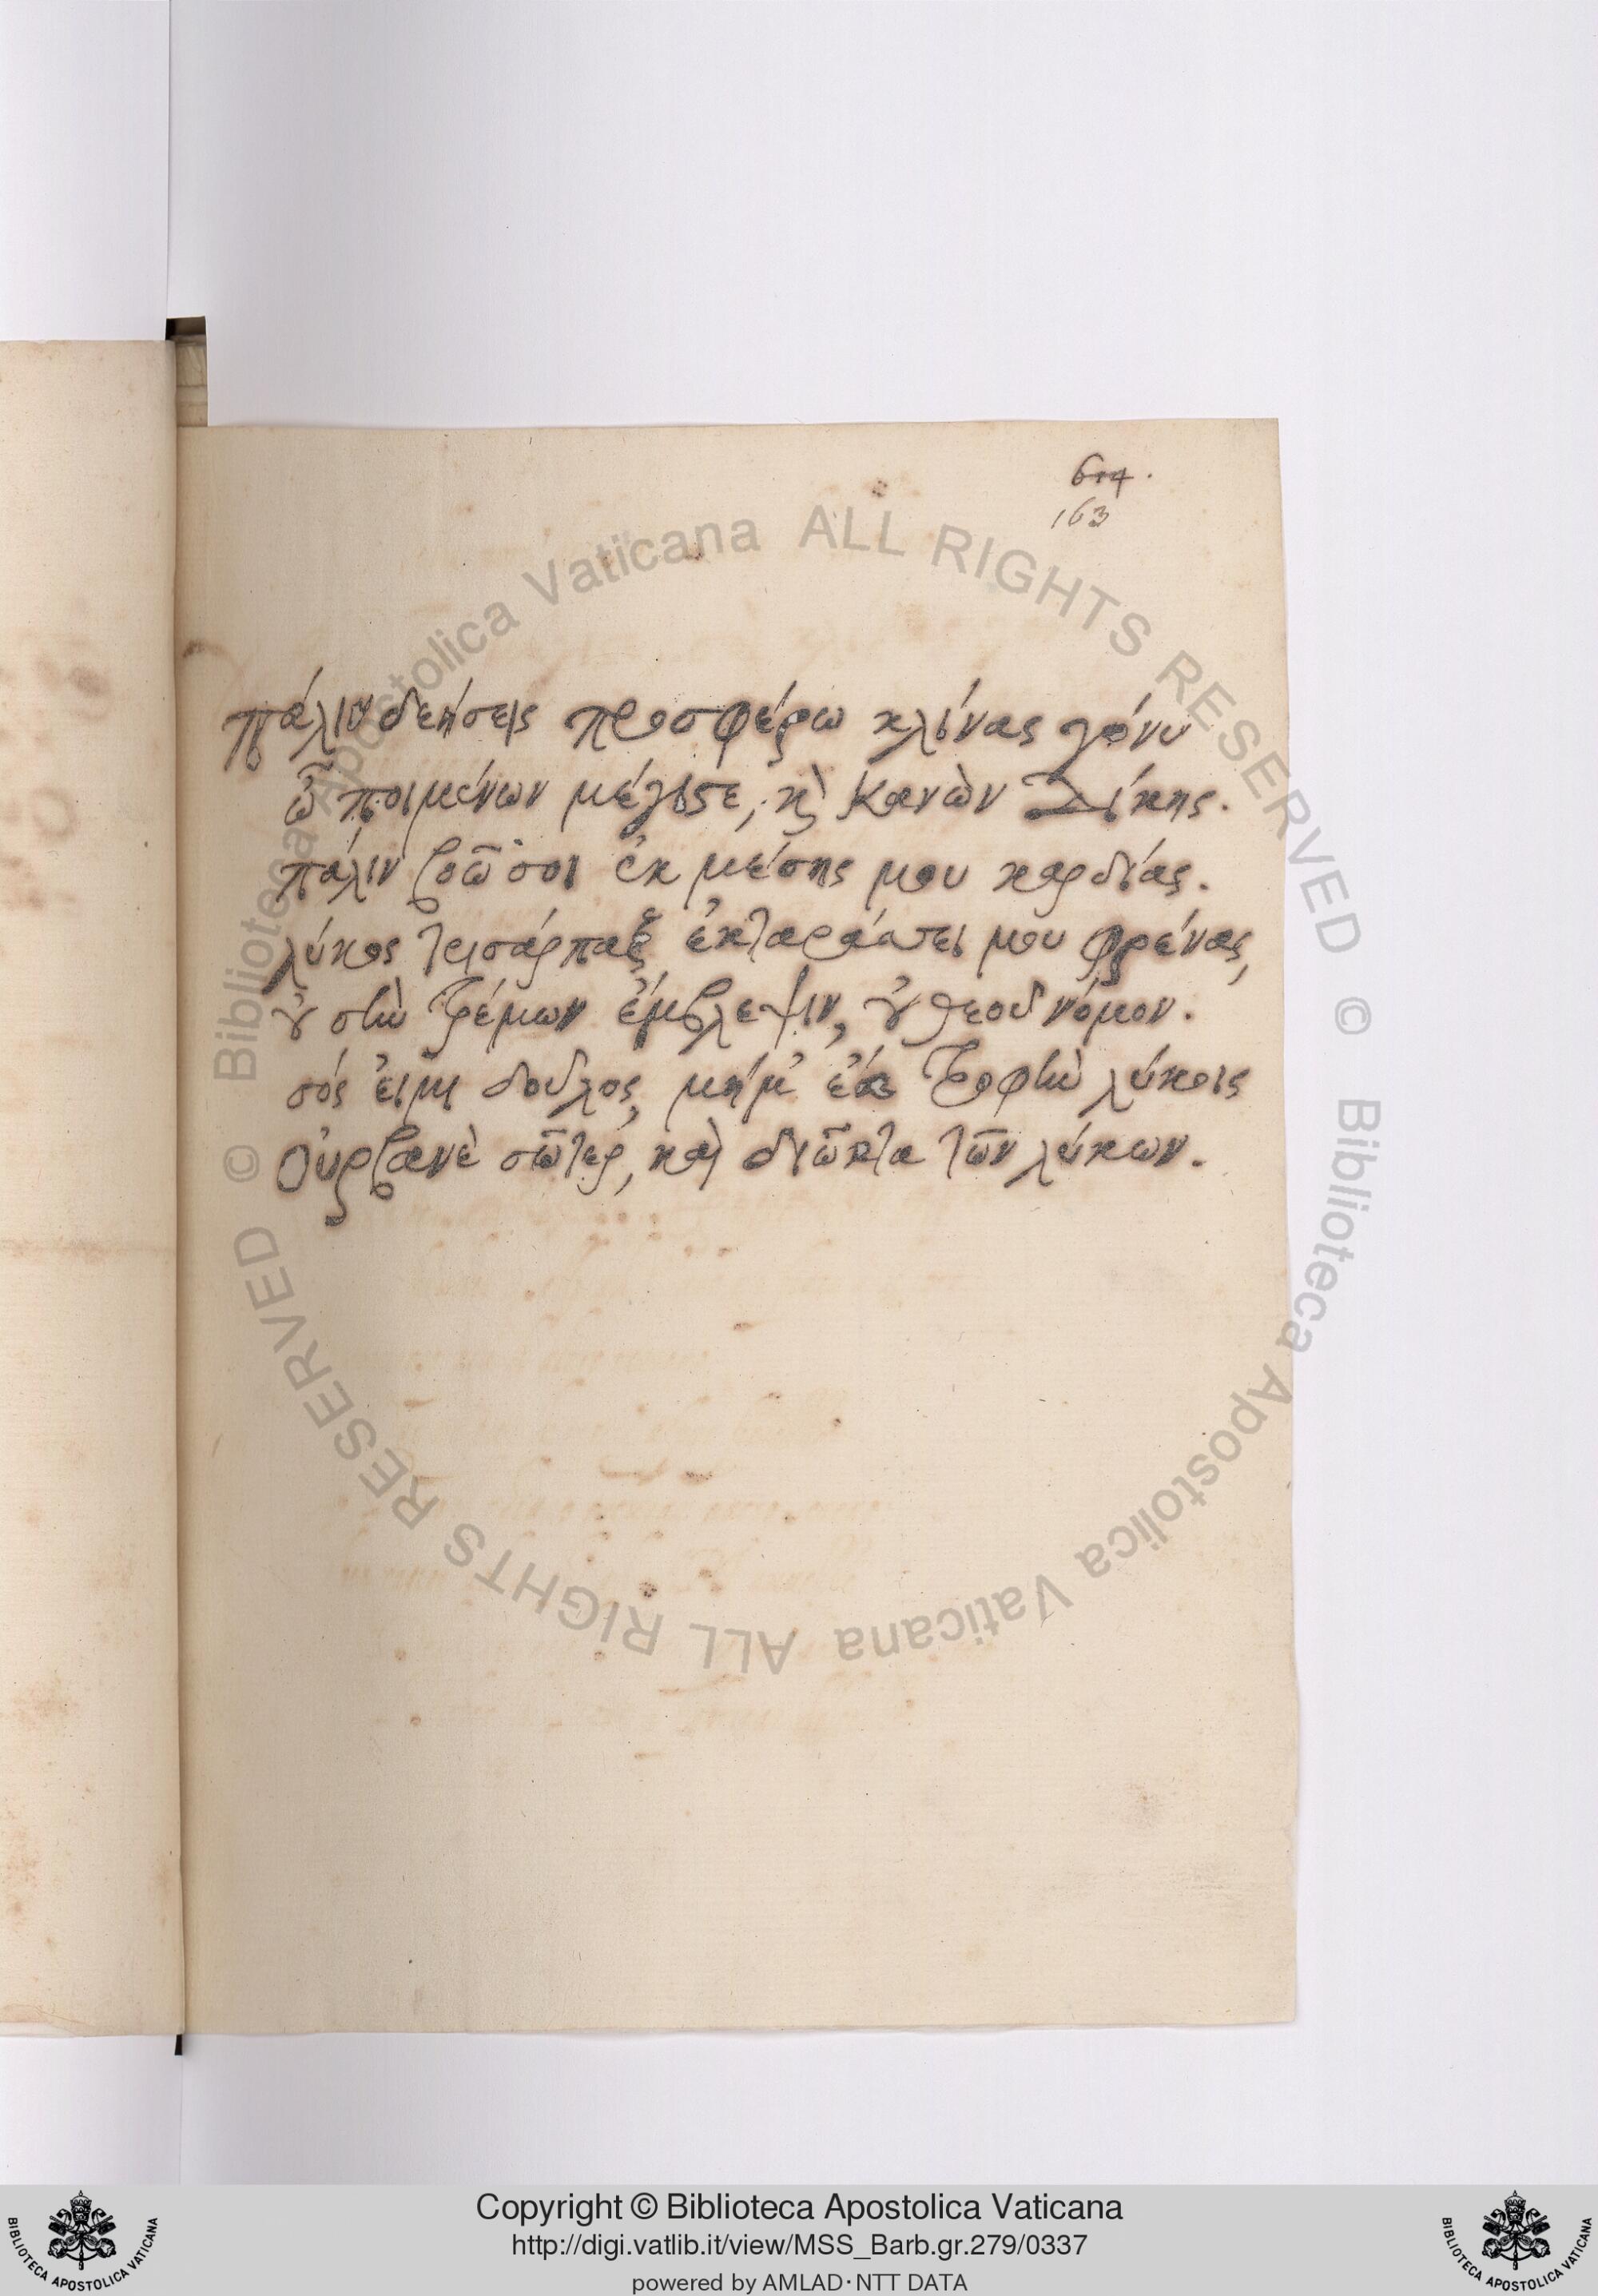 614.
163
πάλιν δεήσεις προσφέρω κλίνας γόνυ
ὦ ποιμένων μέγιϛε, κ̀ Κανὼν Δίκης.
πάλιν βοῶ σοι ἐκ μέσης μου καρδίας.
λύκος τρισάρπαξ ἐκταράσσει μου φρένας,
ȣ̓ σὴν τρέμων ἔμβλεψιν, ȣ̓ θεοῦ νόμον.
σός εἰμι δοῦλος, μή μ' ἐᾶ τροφὴν λύκοις
Οὐρβανὲ σῶτερ, καὶ διῶκτα τῶν λύκων.
© Biblioteca Apostolica Vaticana ALL RIGHTS RESERVED
© Biblioteca Apostolica Vaticana ALL RIGHTS RESERVED
BIBLIOTECA APOSTOLICA VATICANA
Copyright © Biblioteca Apostolica Vaticana
http://digi.vatlib.it/view/MSS_Barb.gr.279/0337
powered by AMLAD·NTT DATA
BIBLIOTECA APOSTOLICA VATICANA